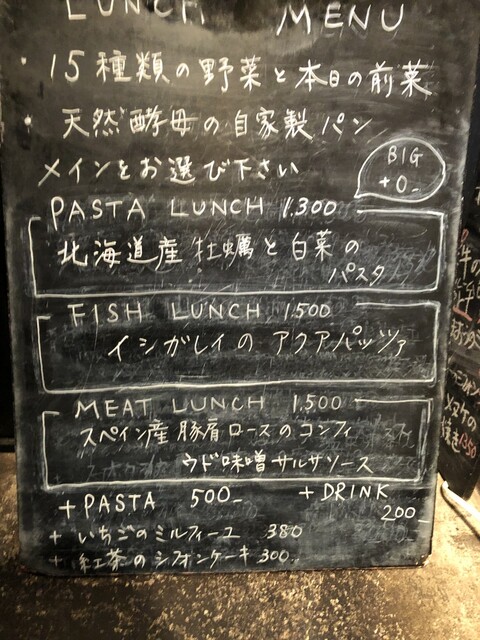 LUNCH MENU
・15種類の野菜と本日の前菜
・天然酵母の自家製パン
メインをお選び下さい
BIG
+0-
PASTA LUNCH 1.300
北海道産 牡蠣と白菜の
パスタ
FISH LUNCH 1.500
イシガレイの アクアパッツァ
MEAT LUNCH 1,500
スペイン産 豚肩ロースのコンフィ
ウド味噌サルサソース
+PASTA 500-
+DRINK
200-
+ いちごのミルフィーユ 380
+ 紅茶のシフォンケーキ 300